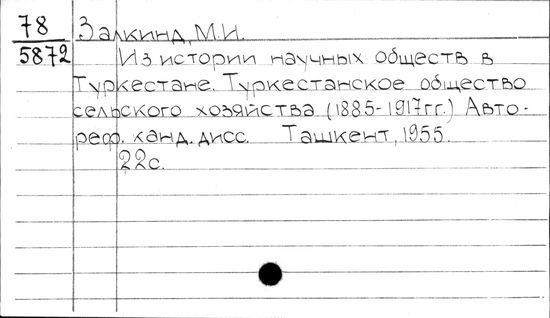 78 Залкинд, М.И.
5872 Из истории научных обществ в
Туркестане. Туркестанское общество
сельского хозяйства (1885-1917гг.) Авто-
реф. канд. дисс. Ташкент, 1955.
22с.